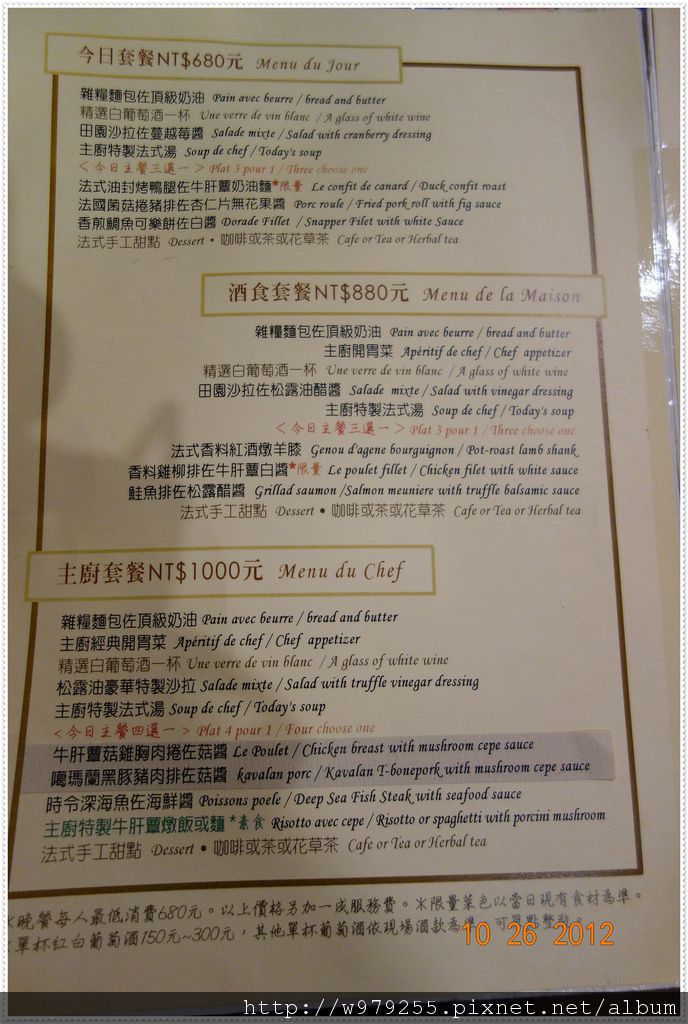 今日套餐NT$680元 Menu du Jour
雜糧麵包佐頂級奶油 Pain avec beurre / bread and butter
精選白葡萄酒一杯 Une verre de vin blanc / A glass of white wine
田園沙拉佐蔓越莓醬 Salade mixte / Salad with cranberry dressing
主廚特製法式湯 Soup de chef / Today's soup
<今日主餐三選一> Plat 3 pour 1 / Three choose one
法式油封烤鴨腿佐牛肝蕈奶油麵*限量 Le confit de canard / Duck confit roast
法國菌菇捲豬排佐杏仁片無花果醬 Porc roule / Fried pork roll with fig sauce
香煎鯛魚可樂餅佐白醬 Dorade Fillet / Snapper Filet with white Sauce
法式手工甜點 Dessert • 咖啡或茶或花草茶 Cafe or Tea or Herbal tea
酒食套餐NT$880元 Menu de la Maison
雜糧麵包佐頂級奶油 Pain avec beurre / bread and butter
主廚開胃菜 Apéritif de chef / Chef appetizer
精選白葡萄酒一杯 Une verre de vin blanc / A glass of white wine
田園沙拉佐松露油醋醬 Salade mixte / Salad with vinegar dressing
主廚特製法式湯 Soup de chef / Today's soup
<今日主餐三選一> Plat 3 pour 1 / Three choose one
法式香料紅酒燉羊膝 Genou d'agene bourguignon / Pot-roast lamb shank
香料雞柳排佐牛肝蕈白醬*限量 Le poulet fillet / Chicken filet with white sauce
鮭魚排佐松露醋醬 Grillad saumon /Salmon meuniere with truffle balsamic sauce
法式手工甜點 Dessert • 咖啡或茶或花草茶 Cafe or Tea or Herbal tea
主廚套餐NT$1000元 Menu du Chef
雜糧麵包佐頂級奶油 Pain avec beurre / bread and butter
主廚經典開胃菜 Apéritif de chef / Chef appetizer
精選白葡萄酒一杯 Une verre de vin blanc / A glass of white wine
松露油豪華特製沙拉 Salade mixte / Salad with truffle vinegar dressing
主廚特製法式湯 Soup de chef / Today's soup
<今日主餐四選一> Plat 4 pour 1 / Four choose one
牛肝蕈菇雞胸肉捲佐菇醬 Le Poulet / Chicken breast with mushroom cepe sauce
噶瑪蘭黑豚豬肉排佐菇醬 kavalan porc / Kavalan T-bonepork with mushroom cepe sauce
時令深海魚佐海鮮醬 Poissons poele / Deep Sea Fish Steak with seafood sauce
主廚特製牛肝蕈燉飯或麵 *素食 Risotto avec cepe / Risotto or spaghetti with porcini mushroom
法式手工甜點 Dessert • 咖啡或茶或花草茶 Cafe or Tea or Herbal tea
※晚餐每人最低消費680元。以上價格另加一成服務費。※限量菜色以當日現有食材為準。
單杯紅白葡萄酒150元~300元，其他單杯葡萄酒依現場酒款為準，可單點整瓶。
10 26 2012
http://w979255.pixnet.net/album